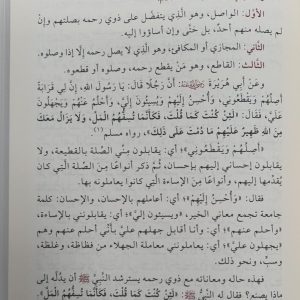 الأوَّل: الواصل، وهو الَّذِي يتفضَّل على ذوي رحمه بصلتهم وإنْ
لم يصله منهم أحدٌ، بل حتَّى وإن أساؤوا إليه.
الثَّاني: المجازي أو المكافئ، وهو الَّذي لا يصل رحمه إلَّا إذا وصلوه.
الثَّالث: القاطع، هو مَنْ يقطع رحمه، وصلوه أو قطعوه.
وَعَنْ أَبِي هُرَيْرَةَ رَضِيَ اللهُ عَنْهُ: أَنَّ رَجُلًا قَالَ: يَا رَسُولَ اللهِ، إِنَّ لِي قَرَابَةً
أَصِلُهُمْ وَيَقْطَعُونِي، وَأُحْسِنُ إِلَيْهِمْ وَيُسِيئُونَ إِلَيَّ، وَأَحْلُمُ عَنْهُمْ وَيَجْهَلُونَ
عَلَيَّ، فَقَالَ: «لَئِنْ كُنْتَ كَمَا قُلْتَ، فَكَأَنَّمَا تُسِفُّهُمُ الْمَلَّ، وَلَا يَزَالُ مَعَكَ
مِنَ اللهِ ظَهِيرٌ عَلَيْهِمْ مَا دُمْتَ عَلَى ذَلِكَ»، رواه مسلم(١)
«أَصِلُهُمْ وَيَقْطَعُونِي»؛ أي: يقابلون صلتي إيَّاهم بالقطيعة، ولا
يقابلون إحساني إليهم بإحسان، ثُمَّ ذكر أنواعًا مِنَ الصِّلة الَّتي كان
يُقدِّمها إليهم، وأنواعًا مِنَ الإساءة الَّتي كانوا يعاملونه بها.
فقال: «وَأُحْسِنُ إِلَيْهِمْ»؛ أي: أعاملهم بالإحسان، والإحسان: كلمة
جامعة تجمع معاني الخير، «ويسيئون إليَّ»؛ أي: يقابلونني بالإساءة،
«وأحلم عنهم»؛ أي: وأنا أقابل جهلهم عليَّ بأنِّي أحلم عنهم وهم
«يجهلون عليَّ»؛ أي: يعاملونني معاملة الجهلاء من فظاظة، وغلظة،
وسبٍّ، ونحو ذلك.
فهذه حاله ومعاناته مع ذوي رحمه يسترشد النَّبيَّ ﷺ أن يدُلَّه إلى
ماذا يصنع؟ فقال له النَّبيُّ ﷺ: «لَئِنْ كُنْتَ كَمَا قُلْتَ، فَكَأَنَّمَا تُسِفُّهُمُ الْمَلَّ»،